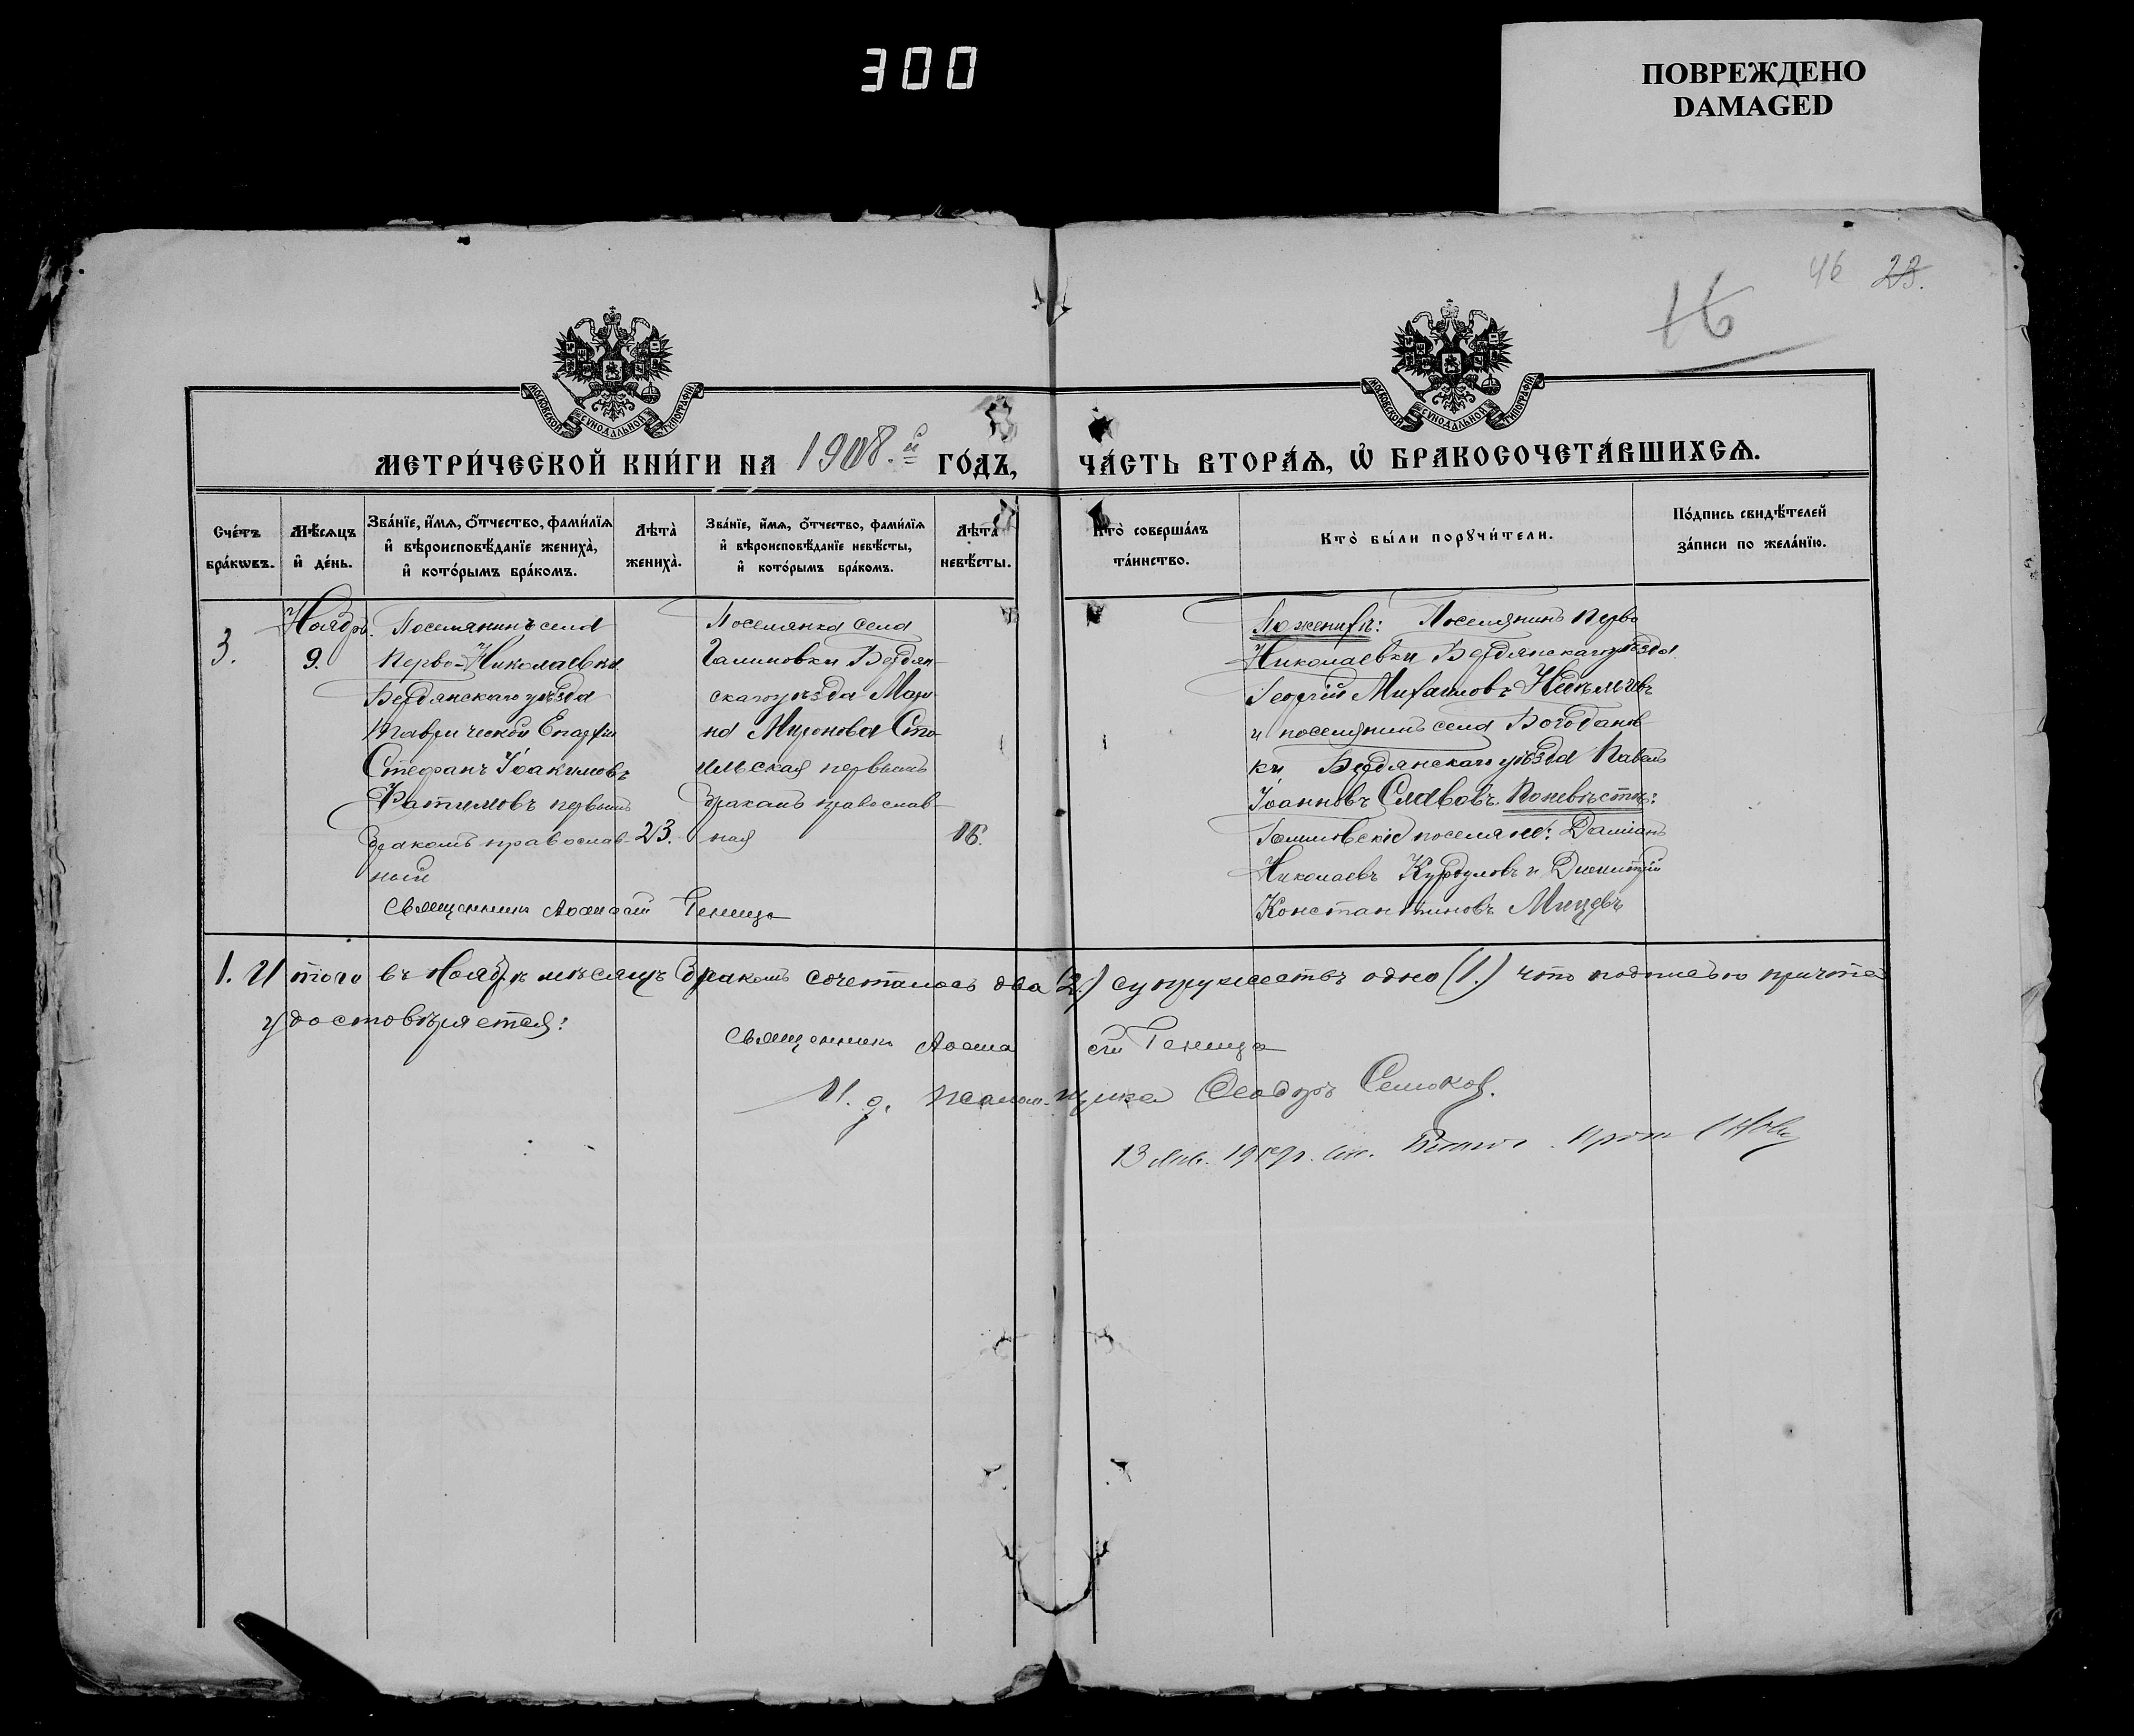 300
ПОВРЕЖДЕНО
DAMAGED
46 23.
16
МОСКОВСКОЙ СѴНОДАЛЬНОЙ ТИПОГРАФІИ
МОСКОВСКОЙ СѴНОДАЛЬНОЙ ТИПОГРАФІИ
МЕТРИ́ЧЕСКОЙ КНИ́ГИ НА 1908.й ГО́ДЪ, ЧА́СТЬ ВТОРА́Ѧ, Ѡ҆ БРАКОСОЧЕТА́ВШИХСѦ.
Сче́тъ бра́кѡвъ.
Мѣ́сѧцъ и҆ де́нь.
Зва́нїе, и҆́мѧ, ѻ҆́тчество, фами́лїѧ и҆ вѣроисповѣ́данїе жениха̀, и҆ кото́рымъ бра́комъ.
Лѣта̀ жениха̀.
Зва́нїе, и҆́мѧ, ѻ҆́тчество, фами́лїѧ и҆ вѣроисповѣ́данїе невѣ́сты, и҆ кото́рымъ бра́комъ.
Лѣта̀ невѣ́сты.
Кто̀ соверша́лъ та́инство.
Кто̀ бы́ли порꙋчи́тели.
По́дпись свидѣ́телей за́писи по жела́нїю.
3.
Ноябр.
9.
Поселянинъ села
Перво-Николаевки
Бердянскаго уѣзда
Таврической Епархіи
Стефанъ Іоакимовъ
Фатимовъ первымъ
бракомъ православ-
ный
23.
Поселянка села
Галиновки Бердян-
скаго уѣзда Мари-
на Миронова Сто-
ильская первымъ
бракомъ православ-
ная
16.
По женихѣ: Поселянинъ Перво
Николаевки Бердянскаго уѣзда
Георгій Михайловъ
и поселянинъ села Богданов-
ки Бердянскаго уѣзда Павелъ
Іоанновъ Славовъ. По невѣстѣ:
поселяне: Даміанъ
Николаевъ Курдумовъ и Димитрій
Константиновъ Мицевъ
Священникъ Аѳанасій Геница
1. Итого въ Ноябрѣ мѣсяцѣ бракомъ сочеталось два (2.) супружествъ одно (1.) что подписью причта
удостовѣряется:
Священникъ Аѳанасій Геница
И. д. псаломщика Ѳеодоръ
13 Янв. 1909 г.